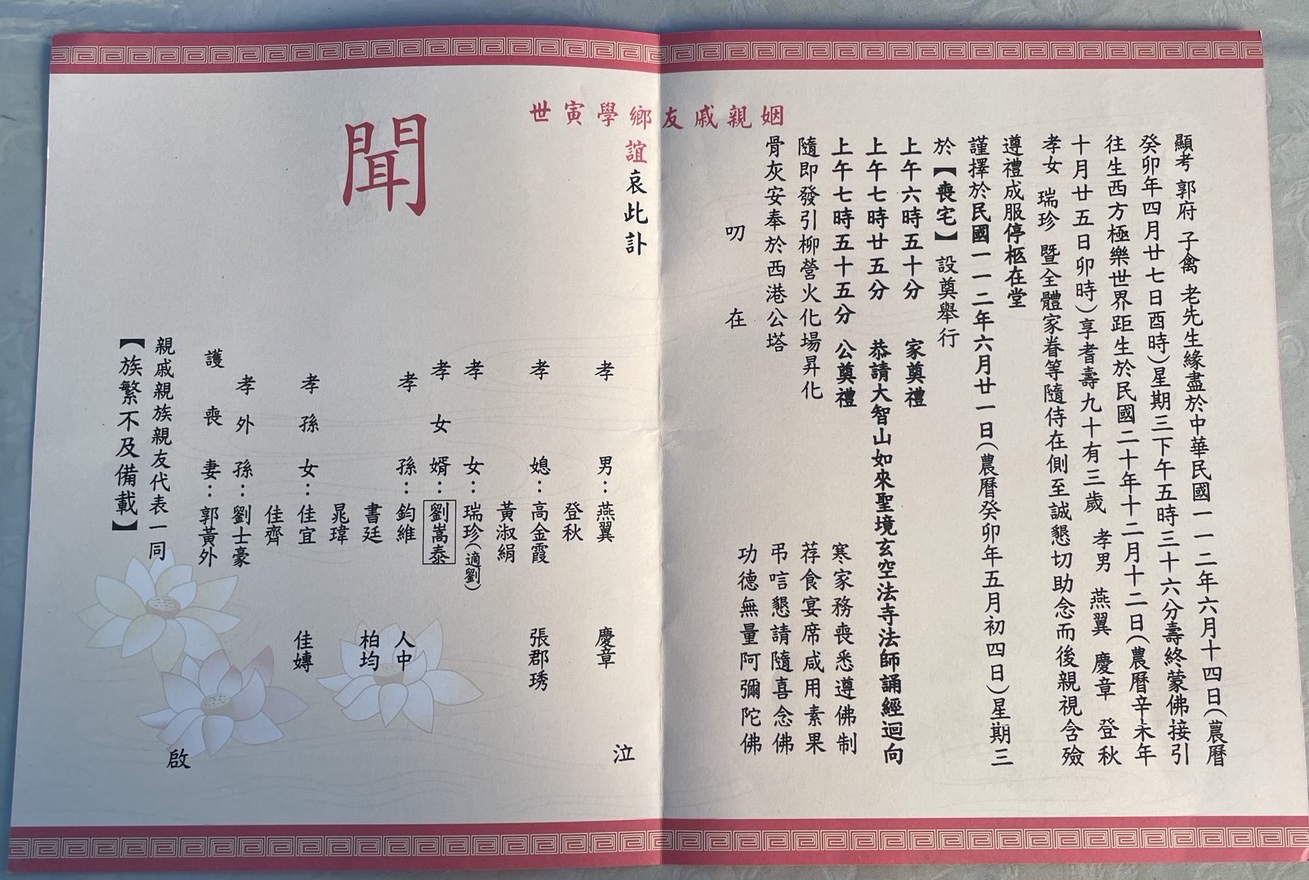 顯考 郭府 子禽 老先生緣盡於中華民國一一二年六月十四日(農曆
癸卯年四月廿七日酉時)星期三下午五時三十六分壽終蒙佛接引
往生西方極樂世界距生於民國二十年十二月十二日(農曆辛未年
十月廿五日卯時)享耆壽九十有三歲 孝男 燕翼 慶章 登秋
孝女 瑞珍 暨全體家眷等隨侍在側至誠懇切助念而後親視含殮
遵禮成服停柩在堂
謹擇於民國一一二年六月廿一日(農曆癸卯年五月初四日)星期三
於【喪宅】設奠舉行
上午六時五十分 家奠禮
上午七時廿五分 恭請大智山如來聖境玄空法寺法師誦經迴向
上午七時五十五分 公奠禮
隨即發引柳營火化場昇化
骨灰安奉於西港公塔
寒家務喪悉遵佛制
荐食宴席咸用素果
弔唁懇請隨喜念佛
功德無量阿彌陀佛
叨在
姻親戚友鄉學寅世
誼哀此訃
聞
孝男：燕翼 慶章
登秋
孝媳：高金霞 張郡琇
黃淑絹
孝女：瑞珍(適劉)
孝女婿：劉嵩泰
孝孫：鈞維 人中
書廷 柏均
晁瑋
孝孫女：佳宜 佳嫥
佳齊
孝外孫：劉士豪
護喪妻：郭黃外
親戚親族親友代表一同
【族繁不及備載】
泣
啟